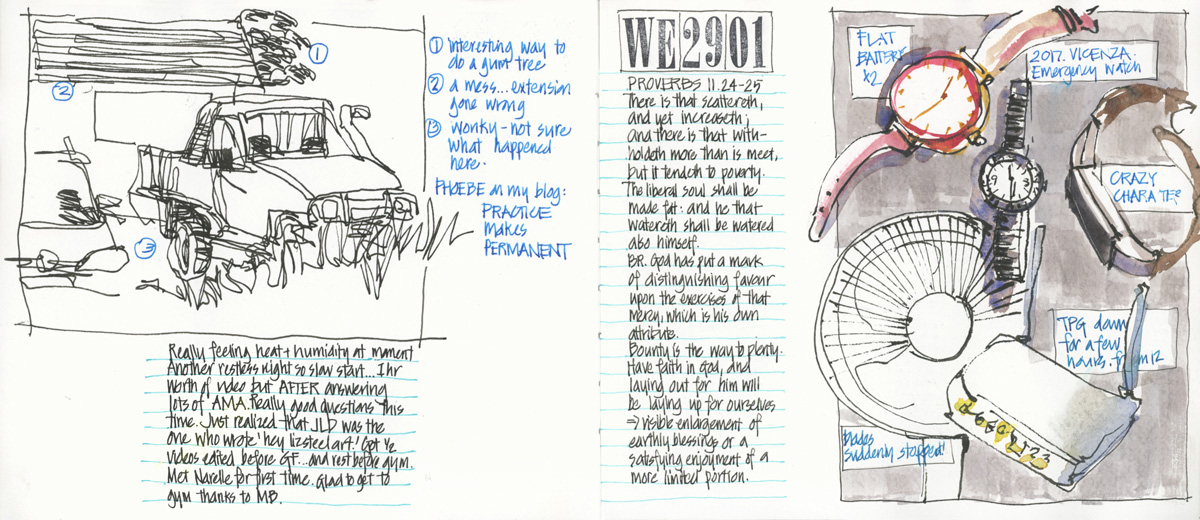 ① interesting way to
do a gum tree
② a mess... extension
gone wrong
③ wonky - not sure
what happened
here.
PHOEBE on my blog:
PRACTICE
makes
PERMANENT
①
②
③
Really feeling heat + humidity at moment
Another restless night so slow start... 1 hr
worth of video but AFTER answering
lots of AMA. Really good questions this
time. Just realized that JLD was the
one who wrote 'hey lizsteel art!' Got
videos edited before GF... and rest before gym.
Met Narelle for first time. Glad to get to
gym thanks to MB.
WE2901
PROVERBS 11.24-25
There is that scattereth,
and yet increaseth;
and there is that with-
holdeth more than is meet,
but it tendeth to poverty.
The liberal soul shall be
made fat: and he that
watereth shall be watered
also himself.
BR. God has put a mark
of distinguishing favour
upon the exercises of that
Mercy, which is his own
attribute.
Bounty is the way to plenty.
Have faith in God, and
laying out for him will
be laying up for ourselves
⇒ visible enlargement of
earthly blessings or a
satisfying enjoyment of a
more limited portion.
FLAT
BATTERY
x2
2017. VICENZA.
Emergency Watch
CRAZY
TPG down
for a few
hours. from 12
blades
suddenly stopped!